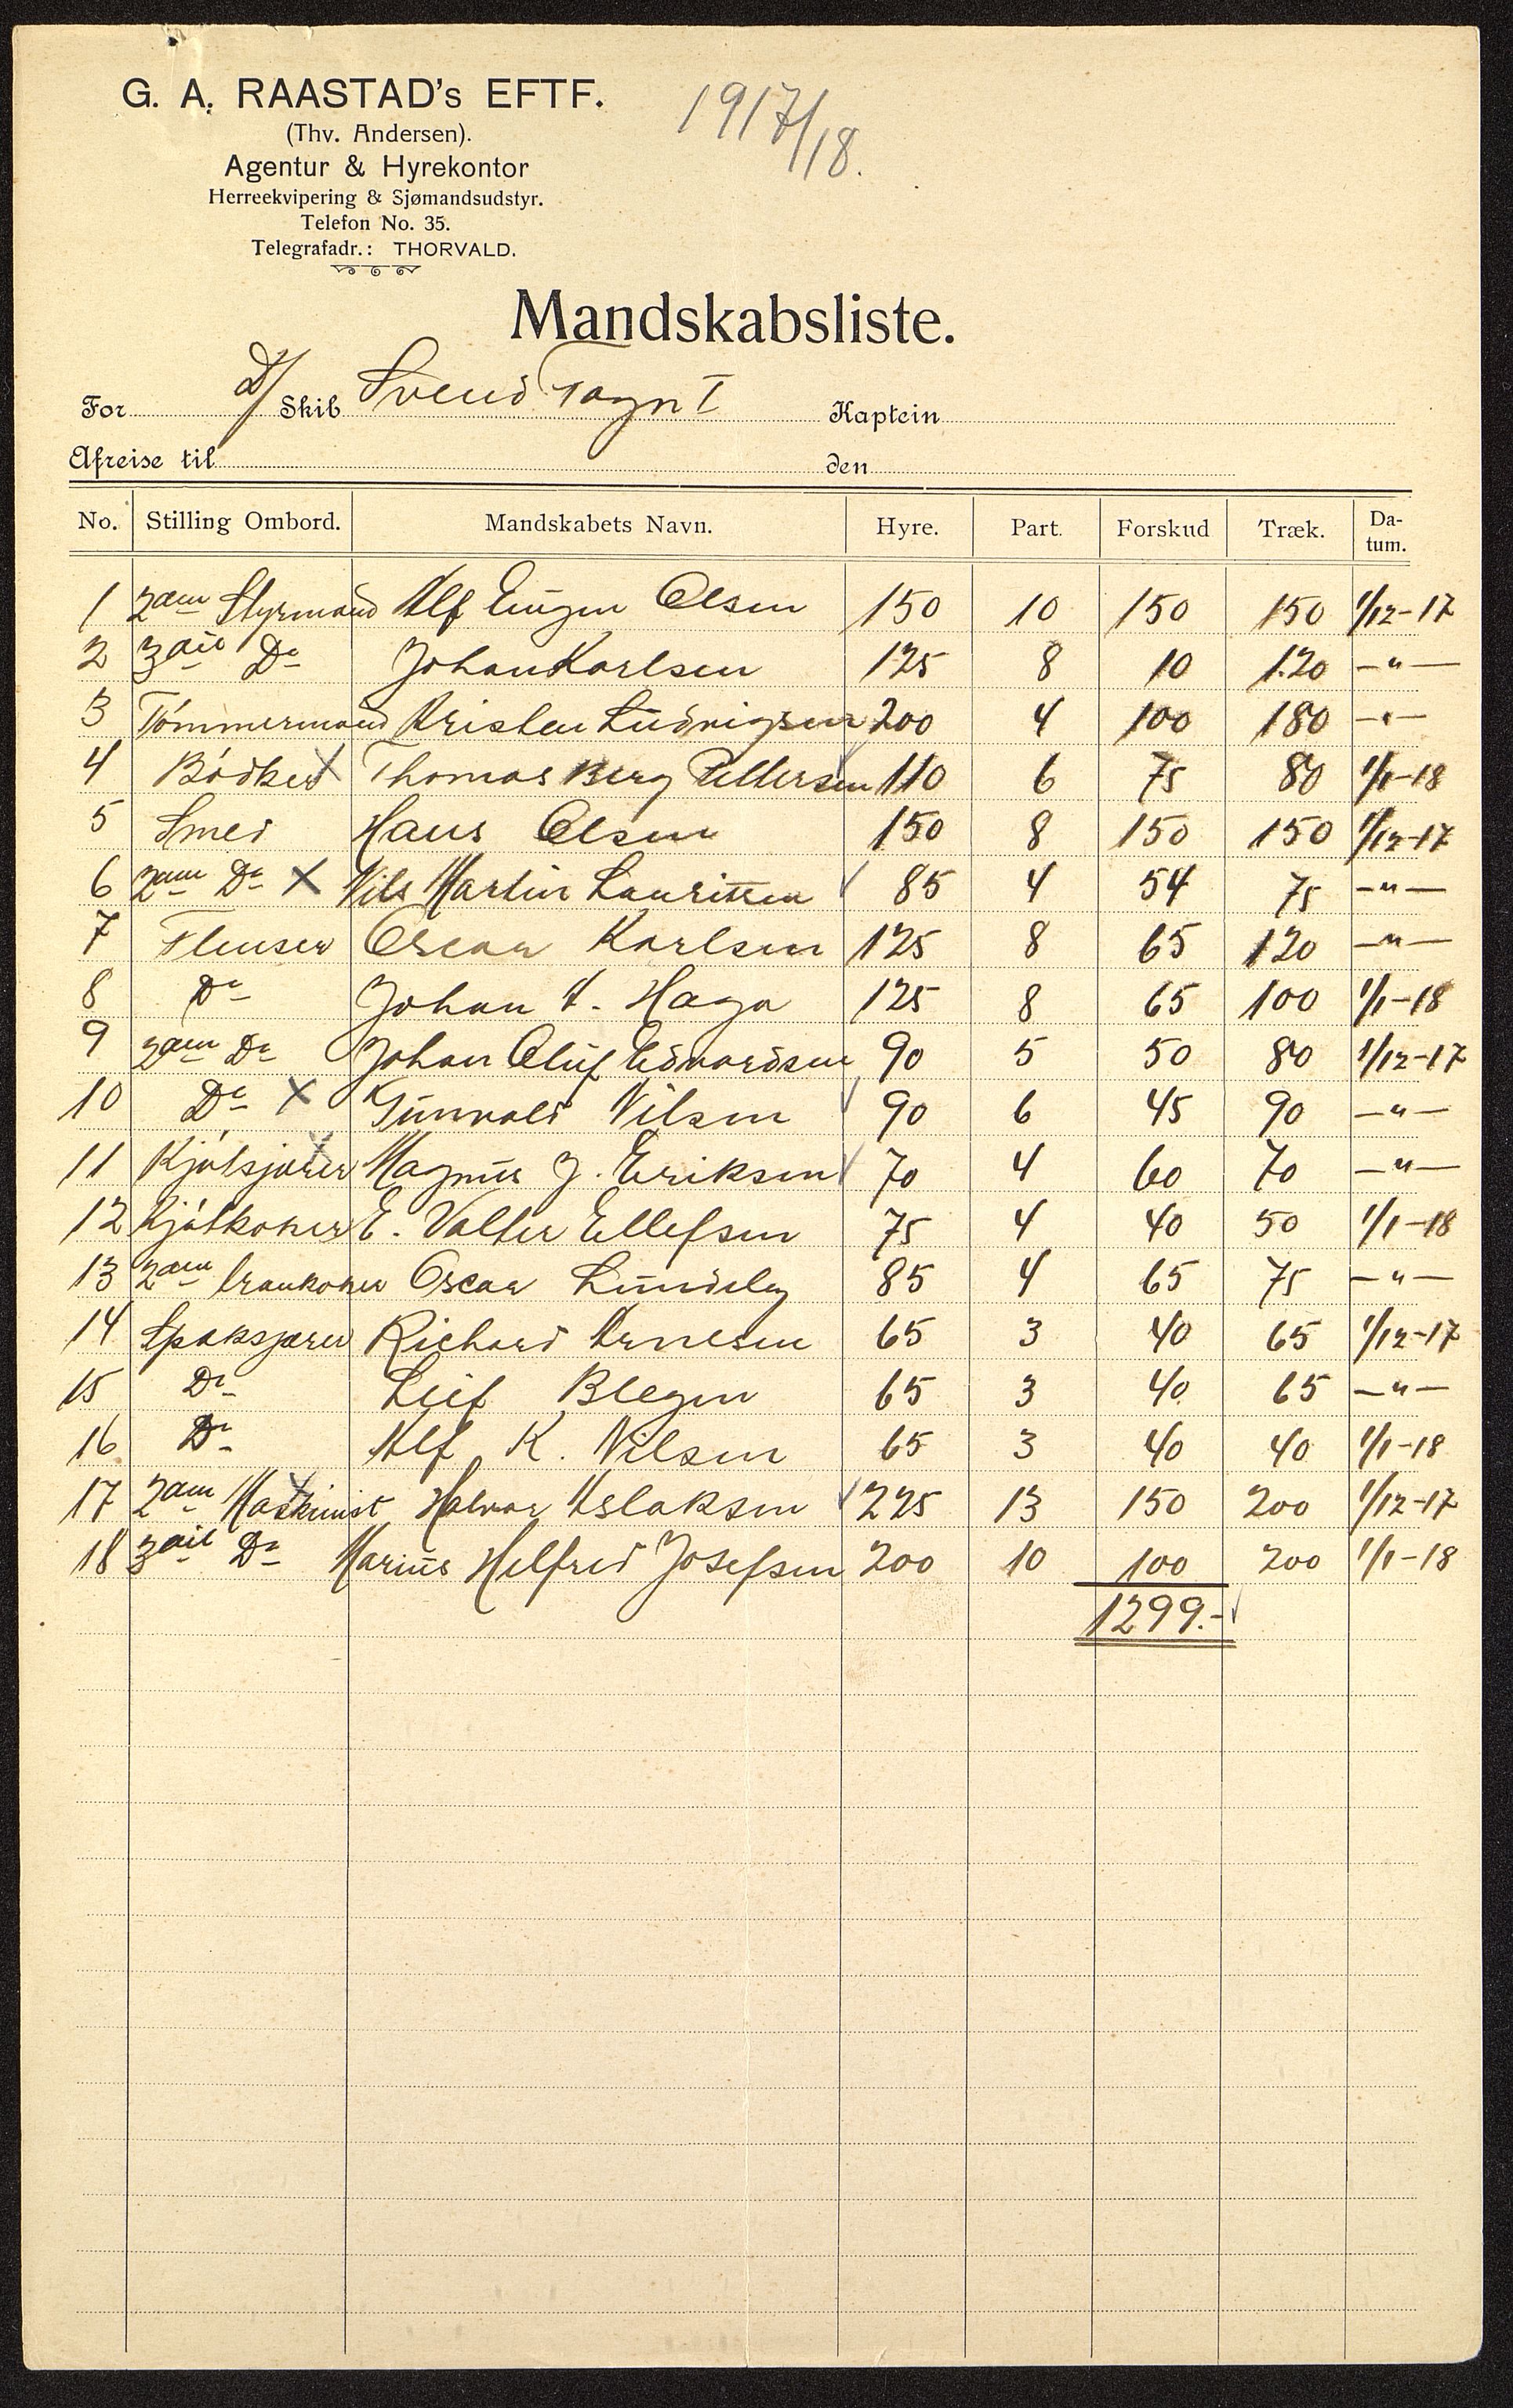 G. A. RAASTAD's EFTF.
(Thv. Andersen).
Agentur & Hyrekontor
Herreekvipering & Sjømandsudstyr.
Telefon No. 35.
Telegrafadr.: THORVALD.
1917/18.
Mandskabsliste.
For D/ Skib Svend Foyn I Kaptein
Afreise til den
No. Stilling Ombord. Mandskabets Navn. Hyre. Part. Forskud Træk. Da-tum.
1 2den Styrmand Alf Eugen Olsen 150 10 150 150 1/12-17
2 3die Do Johan Karlsen 125 8 10 120 -"-
3 Tømmermand Kristen Ludvigsen 200 4 100 180 -"-
4 Bødker X Thomas Berg Pettersen 110 6 75 80 1/1-18
5 Smed Hans Olsen 150 8 150 150 1/12-17
6 2den Do X Nils Martin Lauritsen √ 85 4 54 75 -"-
7 Flenser Oscar Karlsen 125 8 65 120 -"-
8 Do Johan A. Haga 125 8 65 100 1/1-18
9 2den Do Johan Oluf Edvardsen 90 5 50 80 1/12-17
10 Do X Gunvald Nilsen √ 90 6 45 90 -"-
11 Kjøtsjærer Magnus J. Eriksen √ 70 4 60 70 -"-
12 Kjøtkoker E. Valter Ellefsen 75 4 40 50 1/1-18
13 2den trankoker Oscar Lundeby 85 4 65 75 -"-
14 Spæksjærer Richard Arnesen 65 3 40 65 1/12-17
15 Do Leif Blegen 65 3 40 65 -"-
16 Do Alf K. Nilsen 65 3 40 40 1/1-18
17 2den Maskinist Halvor Aslaksen √ 225 13 150 200 1/12-17
18 3die Do Marius Helfred Josefsen 200 10 100 200 1/1-18
1299.- √